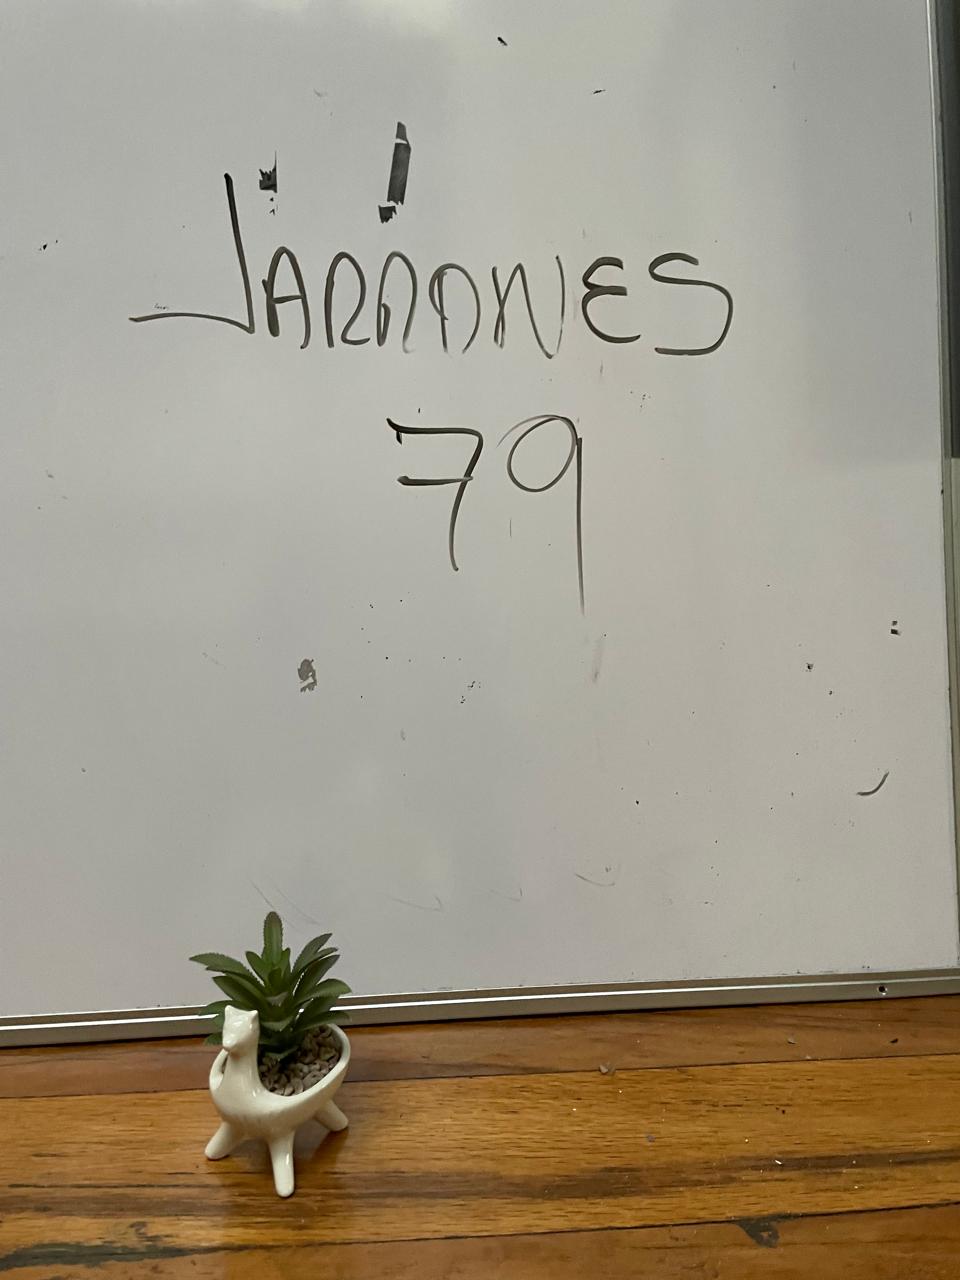 JARRONES
79